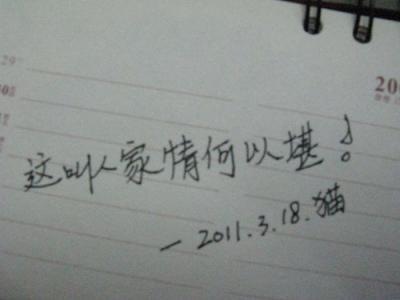 29
30
200
这叫人家情何以堪！
—2011.3.18.猫